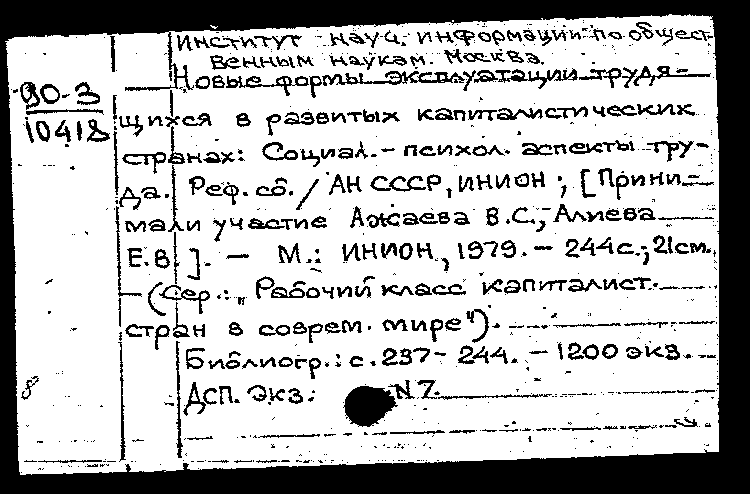 Институт науч. информации по общест-
венным наукам. Москва.
90-3
10418
Новые формы эксплуатации трудя-
щихся в развитых капиталистических
странах: Социал.-психол. аспекты тру-
да. Реф. сб. / АН СССР, ИНИОН; [Прини-
мали участие Ажаева В.С., Алиева
Е.В.]. — М.: ИНИОН, 1979. — 244с.; 21см.
— (Сер.: „Рабочий класс капиталист.
стран в соврем. мире").
Библиогр.: с. 237-244. — 1200 экз.
ДСП. Экз: N 7.
8°